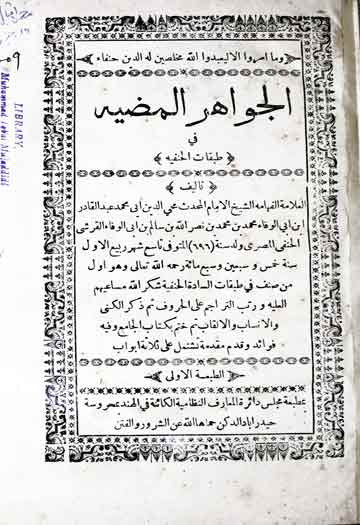 وما امروا الا ليعبدوا الله مخلصين له الدين حنفاء
الجواهر المضيه
في
طبقات الحنفيه
تاليف
العلامة الفهامه الشيخ الامام المحدث محي الدين ابي محمد عبد القادر
ابن ابي الوفاء محمد بن محمد بن نصر الله بن سالم بن ابى الوفاء القرشى
الحنفي المصرى ولد سنة (٦٩٦) المتوفى تاسع شهر ربيع الاول
سنة خمس و سبعين وسبع مائة رحمه الله تعالى وهو اول
من صنف في طبقات السادة الحنفية شكر الله مساعيهم
العليه و رتب التراجم على الحروف ثم ذكر الكنى
والانساب والالقاب ثم ختم بكتاب الجامع وفيه
فوائد وقدم مقدمة تشتمل على ثلاثة ابواب
الطبعة الاولى
بمطبعة مجلس دائرة المعارف النظامية الكائنة في الهند بمحروسة
حيدر اباد الدكن حماها الله عن الشرور والفتن
LIBRARY